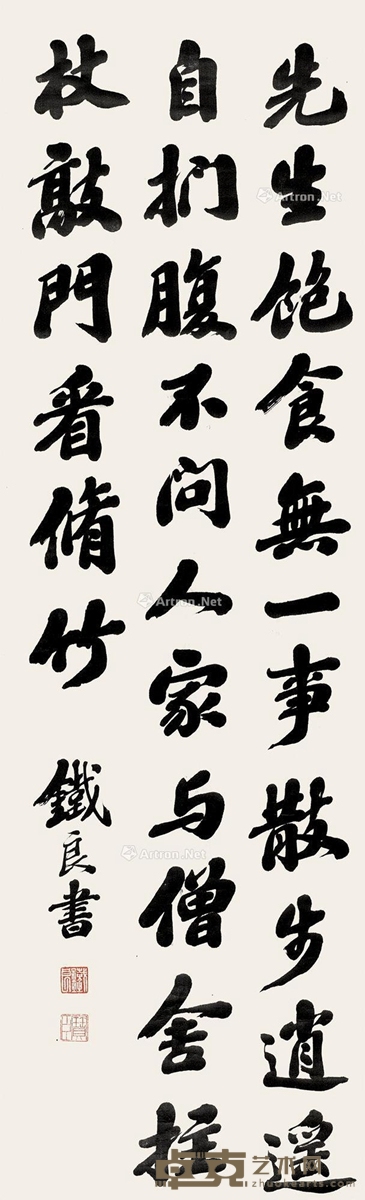 先生飽食無一事散步逍遥
自捫腹不問人家与僧舍拄
杖敲門看脩竹
鐵良書
Artron.Net
Artron.Net
Artron.Net
卓克艺术网
zhuokearts.com